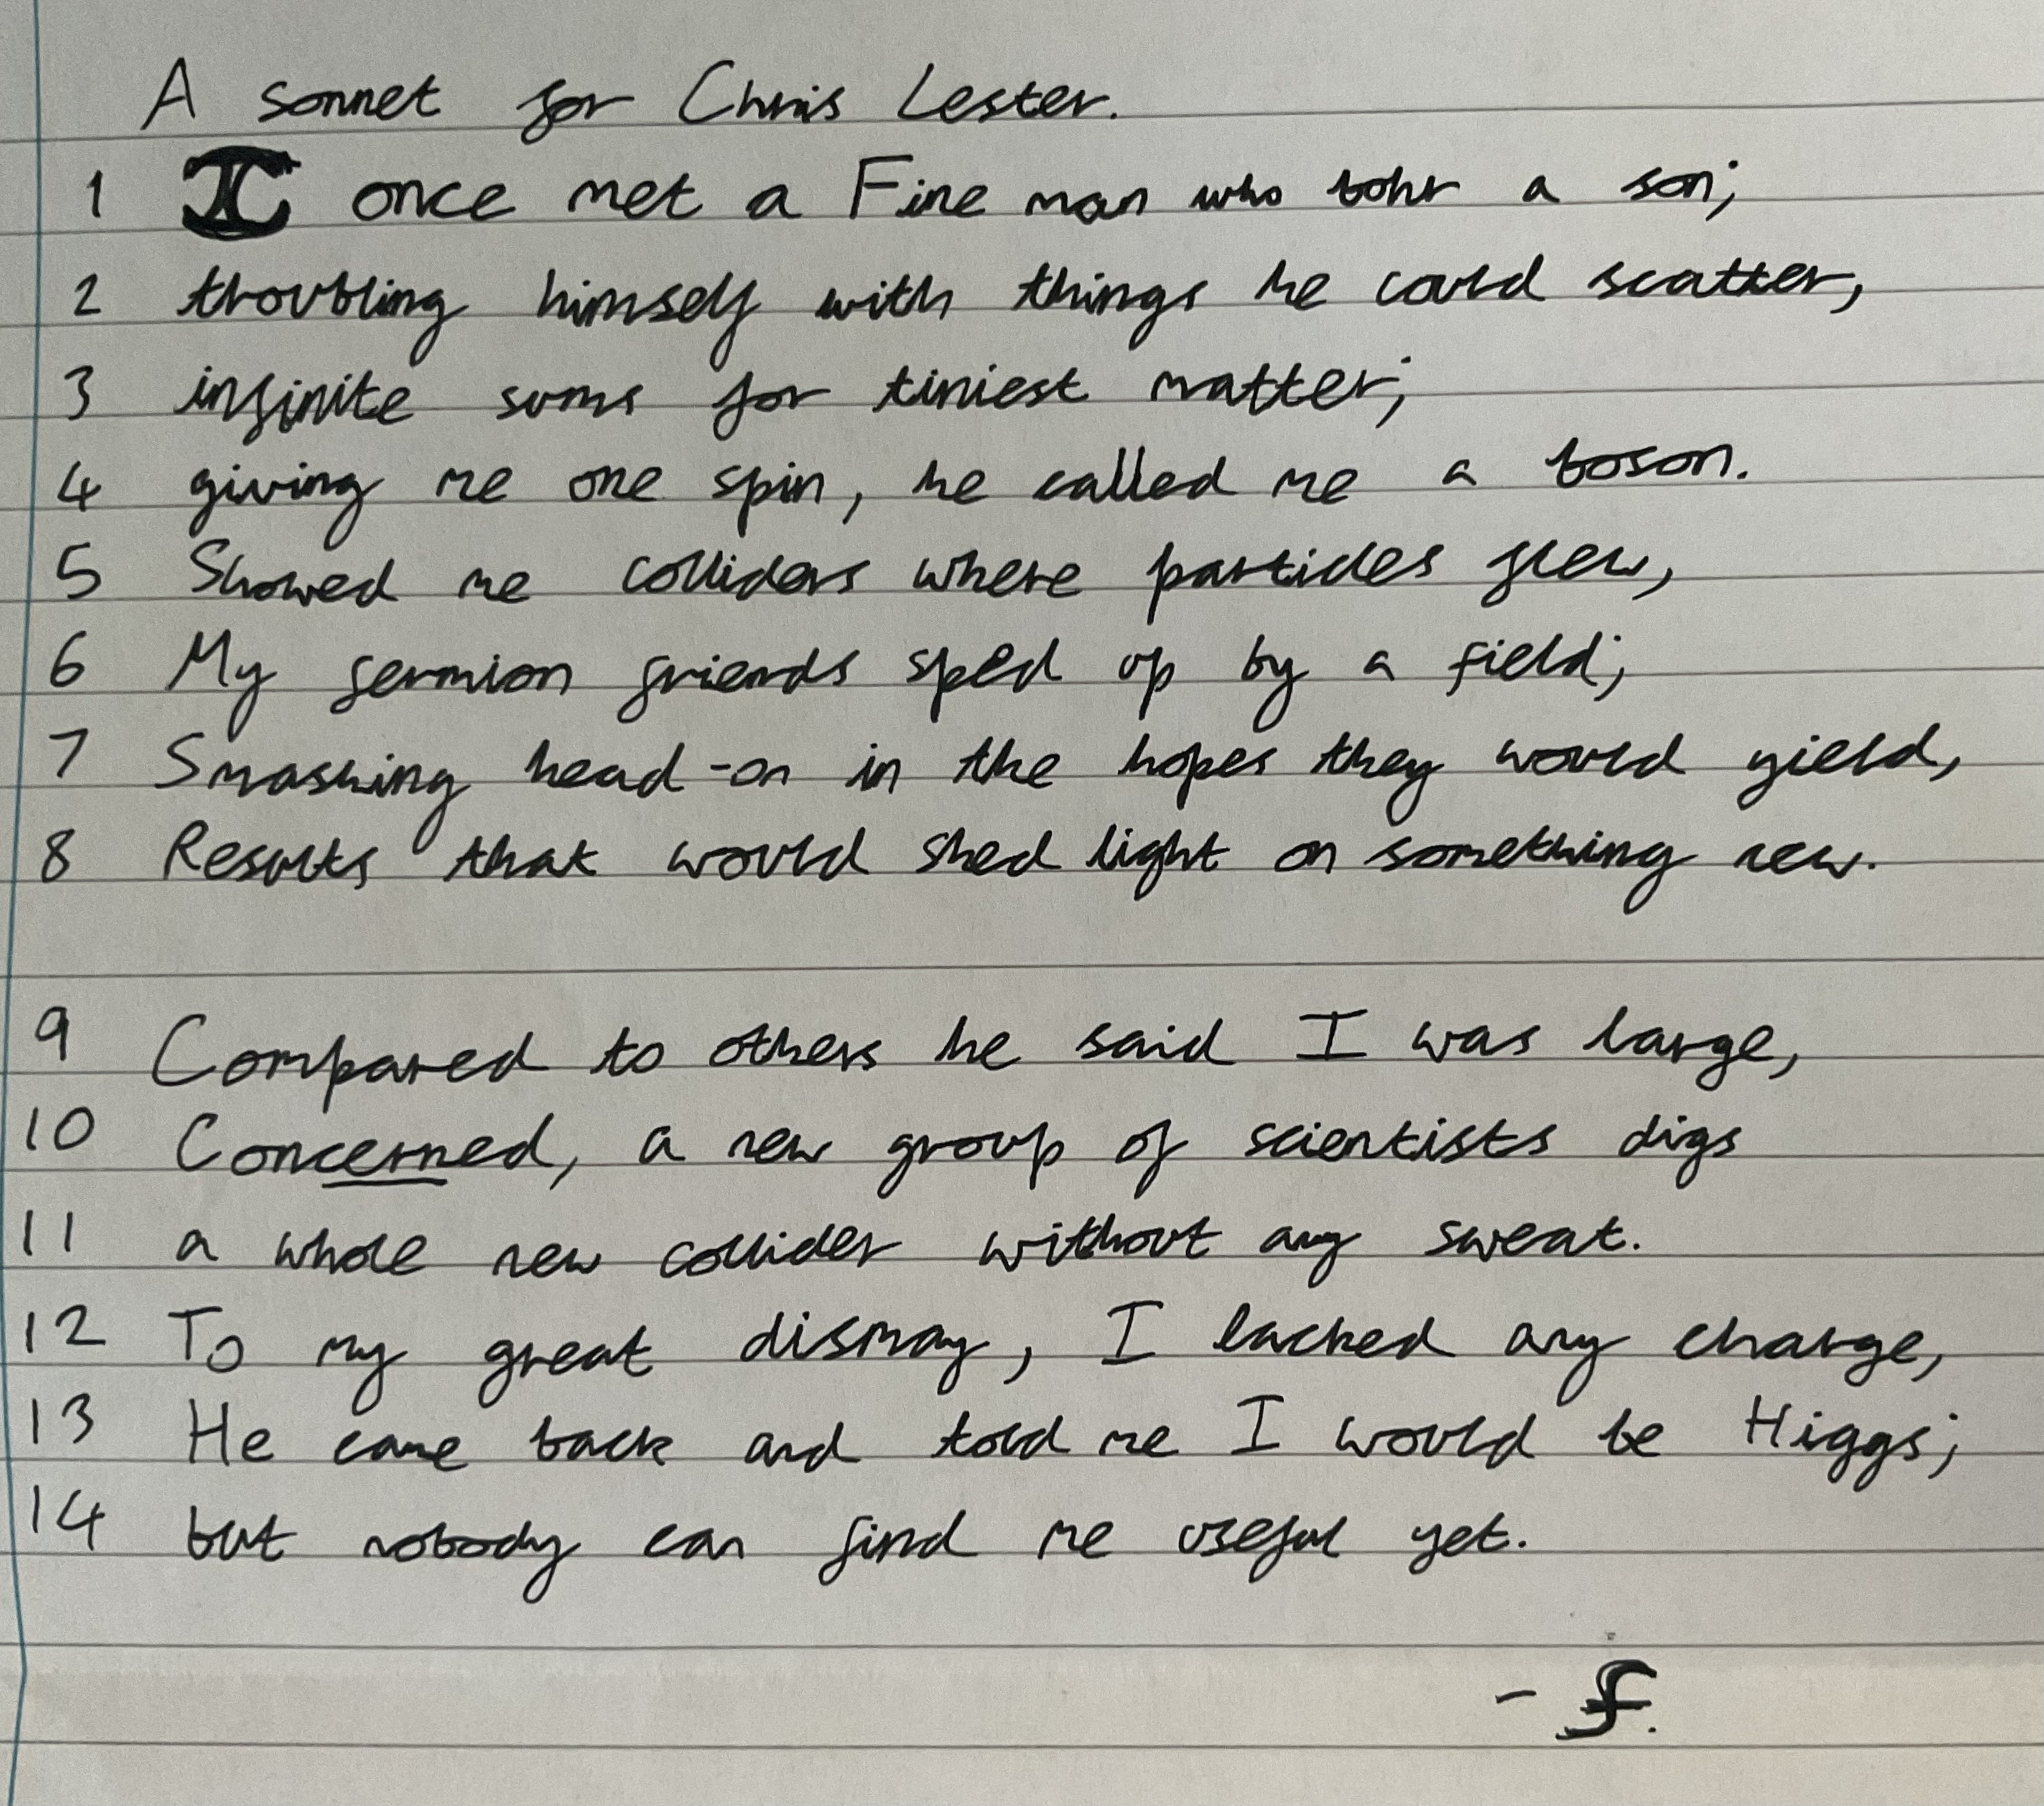 A sonnet for Chris Lester.
1 I once met a Fine man who bohr a son;
2 troubling himself with things he could scatter,
3 infinite sums for tiniest matter;
4 giving me one spin, he called me a boson.
5 Showed me colliders where particles flew,
6 My fermion friends sped up by a field;
7 Smashing head-on in the hopes they would yield,
8 Results that would shed light on something new.
9 Compared to others he said I was large,
10 Concerned, a new group of scientists digs
11 a whole new collider without any sweat.
12 To my great dismay, I lacked any charge,
13 He came back and told me I would be Higgs;
14 but nobody can find me useful yet.
- F.